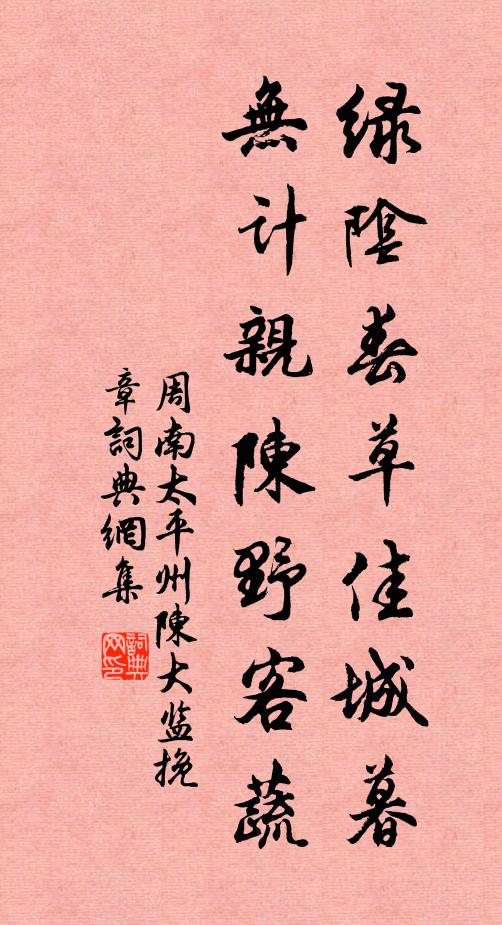 緑陰春草佳城暮
無计親陳野客蔬
周南太平州陳大监挽
章詞典網集
詞典
网印